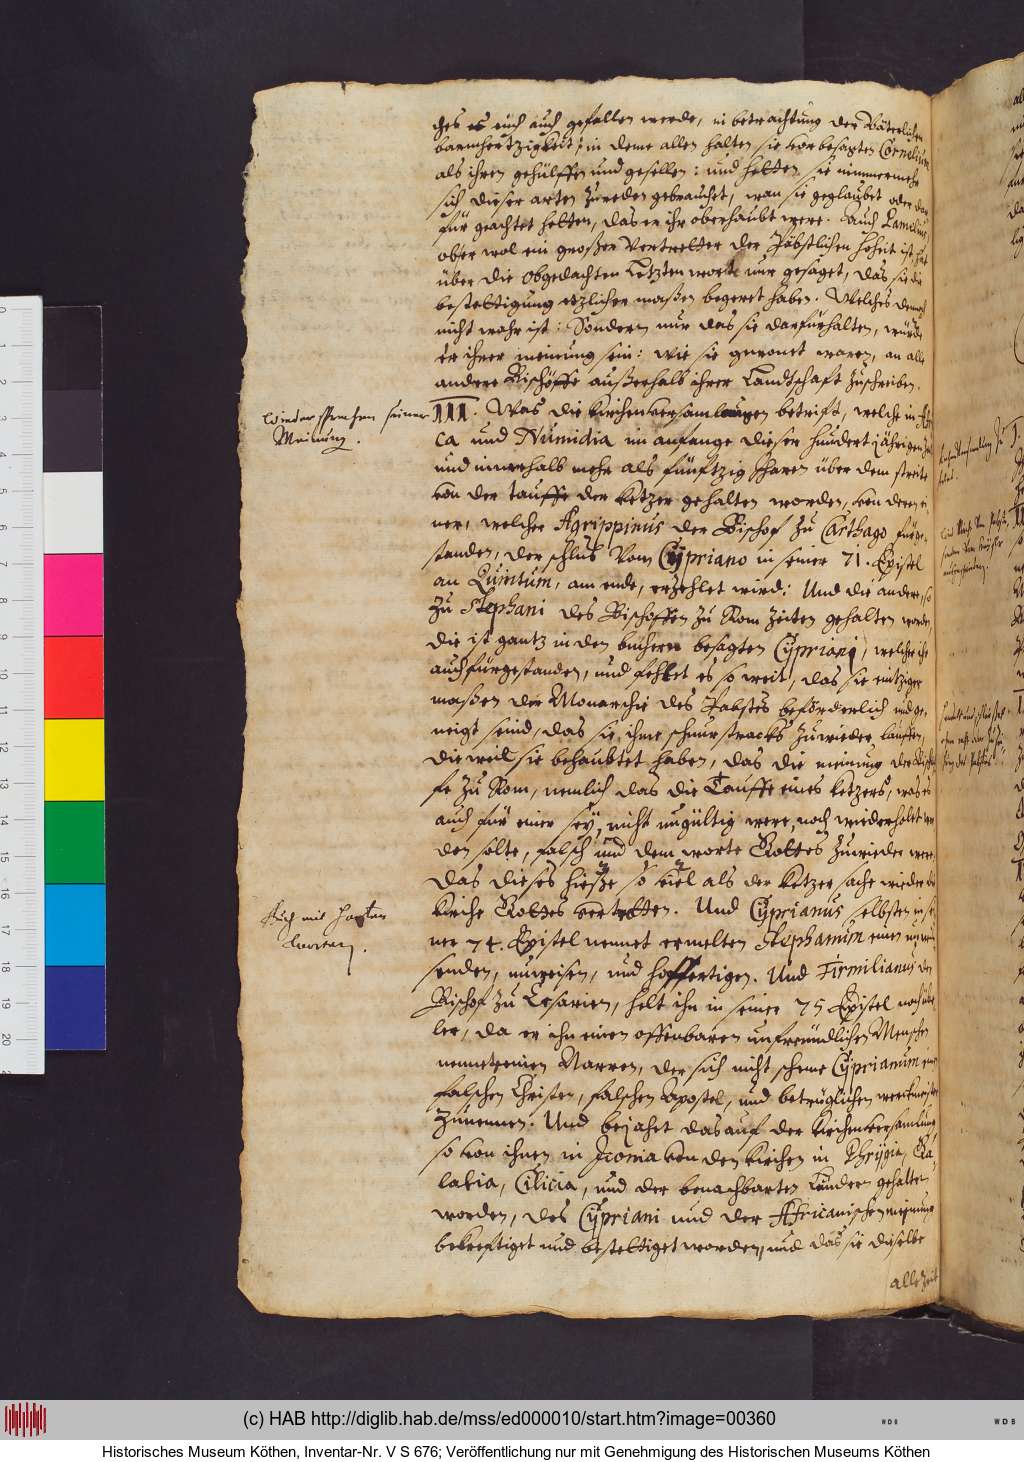 ches es euch auch gefallen werde, in betrachtung der Väterlichen
barmhertzigkeit: in deme allen halten sie vorbesagten Cornelium
als ihren gehülffen und gesellen: und hetten sie nimmermehr
sich dieser arten zureden gebrauchet, wan sie geglaubet oder dar
für geachtet hetten, das er ihr oberhaubt were. Auch
ober wol ein großer Vertretter der Päbstlichen hoheit ist, hat
über die obgedachten Letzten wort nur gesaget, das sie die
bestettigung etzlicher maßen begeret haben. Welches dennoch
nicht wahr ist: Sondern nur das sie darfürhalten, würde
er ihrer meinung sein: wie sie gewonet waren, an alle
andere Bischöffe außerhalb ihrer Landtschaft zuschreiben.
Wiedersprechen seiner
Meinung.
III. Was die Kirchenversamlungen betrift, welche in Afri
ca und Numidia im anfange dieser hundert jährigen Zeit
und innerhalb mehr als fünftzig Jharen über dem streite
von der tauffe der ketzer gehalten worden, von deren ei
ner, welcher Agrippinus der Bischof zu Carthago fürge
standen, der schlus vom Cypriano in seiner 71. Epistel
an Quintum, am ende, erzehlet wird: Und die andere, so
zu Stephani des Bischoffen zu Rom zeiten gehalten worden
die ist gantz in den büchern besagten Cypriani, welcher ihr
auch fürgestanden, und fehlet es so weit, das sie eintziger
maßen der Monarchi des Pabstes beförderlich und ge,
neigt seind, das sie ihme schnurstracks zuwieder lauffen,
dieweil sie behaubtet haben, das die meinung der Bischof
fe zu Rom, nemlich das die Tauffe eines ketzers, was es
auch für einer sey, nicht ungültig were, noch wiederholet wer
den solte, falsch und dem worte Gottes zuwieder were.
das dieses hieße so viel als der ketzer sache wieder die
Auch mit harten
worten.
Kirche Gottes vertretten. Und Cyprianus selbsten in sei
ner 74. Epistel nennet ermelten Stephanum einen unwis
senden, unweisen, und hoffertigen. Und Firmilianus der
Bischof zu Cesarien, helt ihn in seiner 75 Epistel noch übe
ler, da er ihn einen offenbaren unfreündlichen Menschen
nennet einen Narren, der sich nicht scheme Cyprianum einen
falschen Christen, falschen Apostel, und betrüglichen werckmeister
zunennen. Und bejahet das auf der Kirchenversamlung
so von ihnen in Iconia von den Kirchen in Phrygia, Ga,
latia, Cilicia, und der benachbarten Ländern gehalten
worden, des Cypriani und der Africanischen meinung
bekreftiget und bestettiget worden, und das sie dieselbe
allezeit
(c) HAB http://diglib.hab.de/mss/ed000010/start.htm?image=00360
WDB
WDB
Historisches Museum Köthen, Inventar-Nr. V S 676; Veröffentlichung nur mit Genehmigung des Historischen Museums Köthen